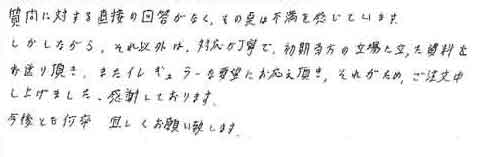 質問に対する直接の回答がなく、その点は不満を感じています。
しかしながら、それ以外は、対応が丁寧で、初期 方の立場に立った資料を
お送り頂き、またイレギュラーな要望にお応え頂き、それがため、ご注文申
し上げました。感謝しております。
今後とも何卒 宜しくお願い致します。